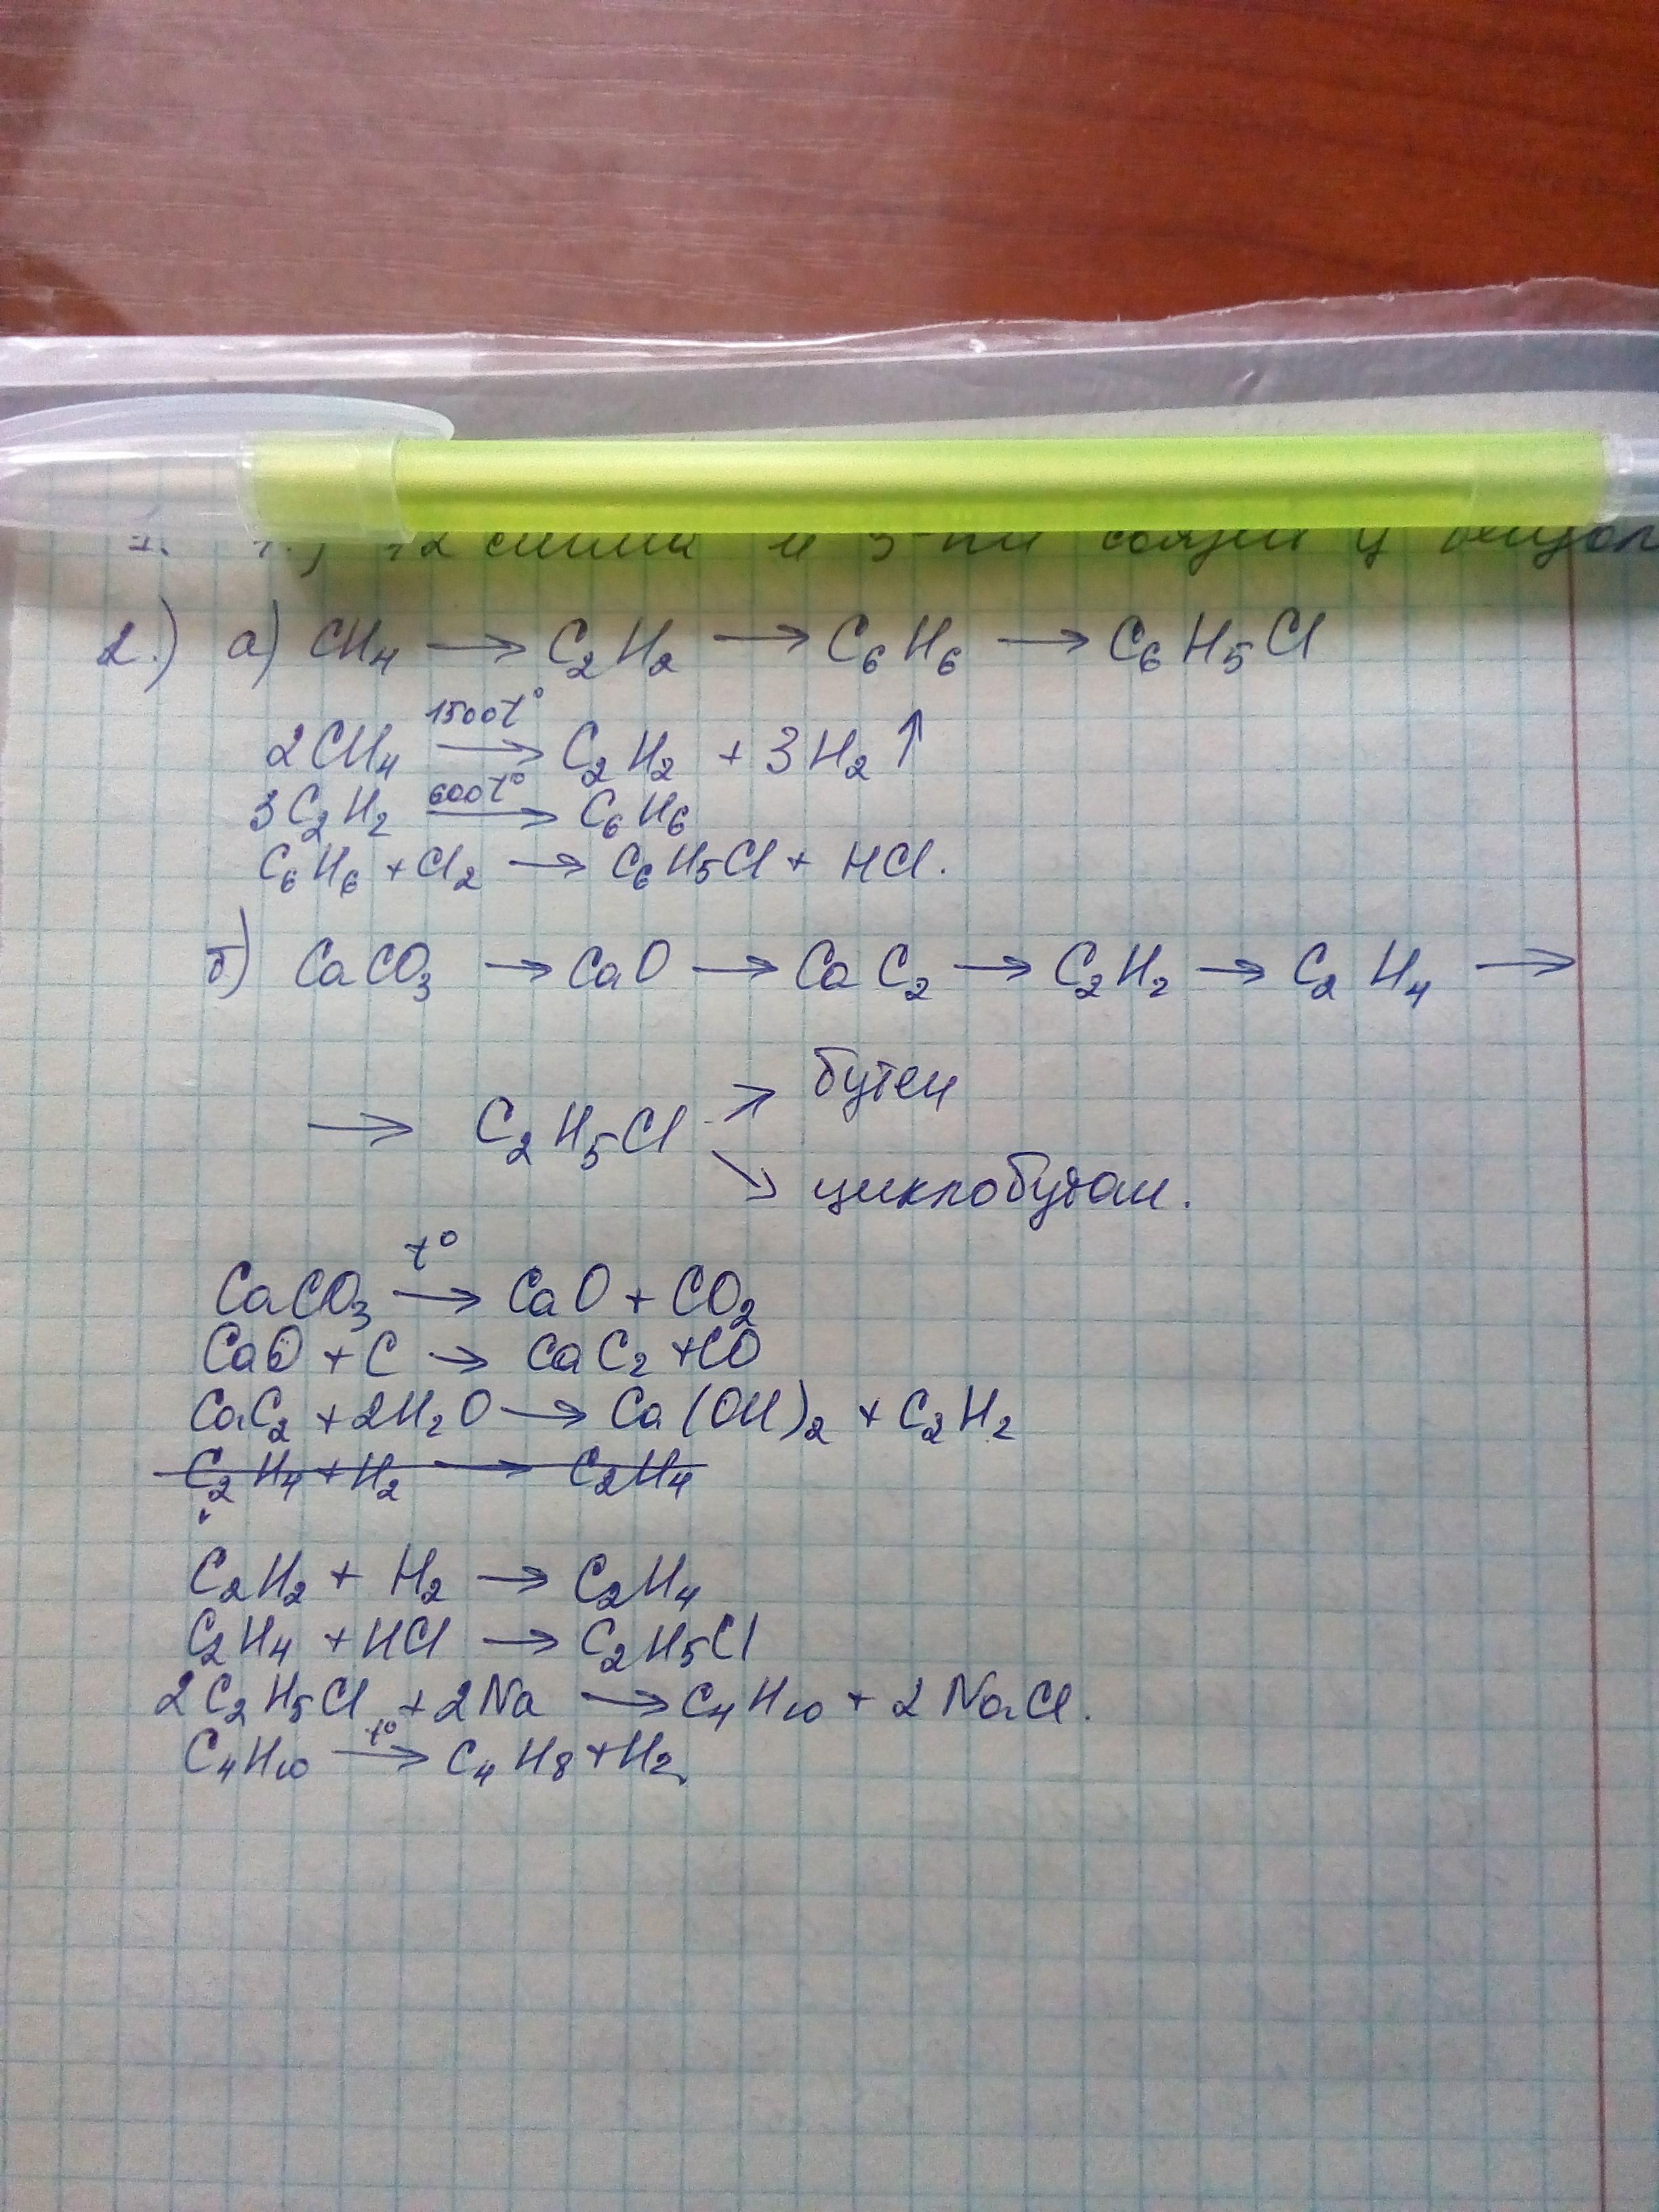 12 сигма и 3 пи связей у
2.) а) CH₄ → C₂H₂ → C₆H₆ → C₆H₅Cl
2CH₄ 1500t° → C₂H₂ + 3H₂ ↑
3C₂H₂ 600t° → C₆H₆
C₆H₆ + Cl₂ → C₆H₅Cl + HCl.
б) CaCO₃ → CaO → CaC₂ → C₂H₂ → C₂H₄ →
→ C₂H₅Cl → бутен
→ циклобутан.
CaCO₃ t° → CaO + CO₂
CaO + C → CaC₂ + CO
CaC₂ + 2H₂O → Ca(OH)₂ + C₂H₂
C₂H₄ + H₂ → C₂H₄
C₂H₂ + H₂ → C₂H₄
C₂H₄ + HCl → C₂H₅Cl
2C₂H₅Cl + 2Na → C₄H₁₀ + 2NaCl.
C₄H₁₀ t° → C₄H₈ + H₂